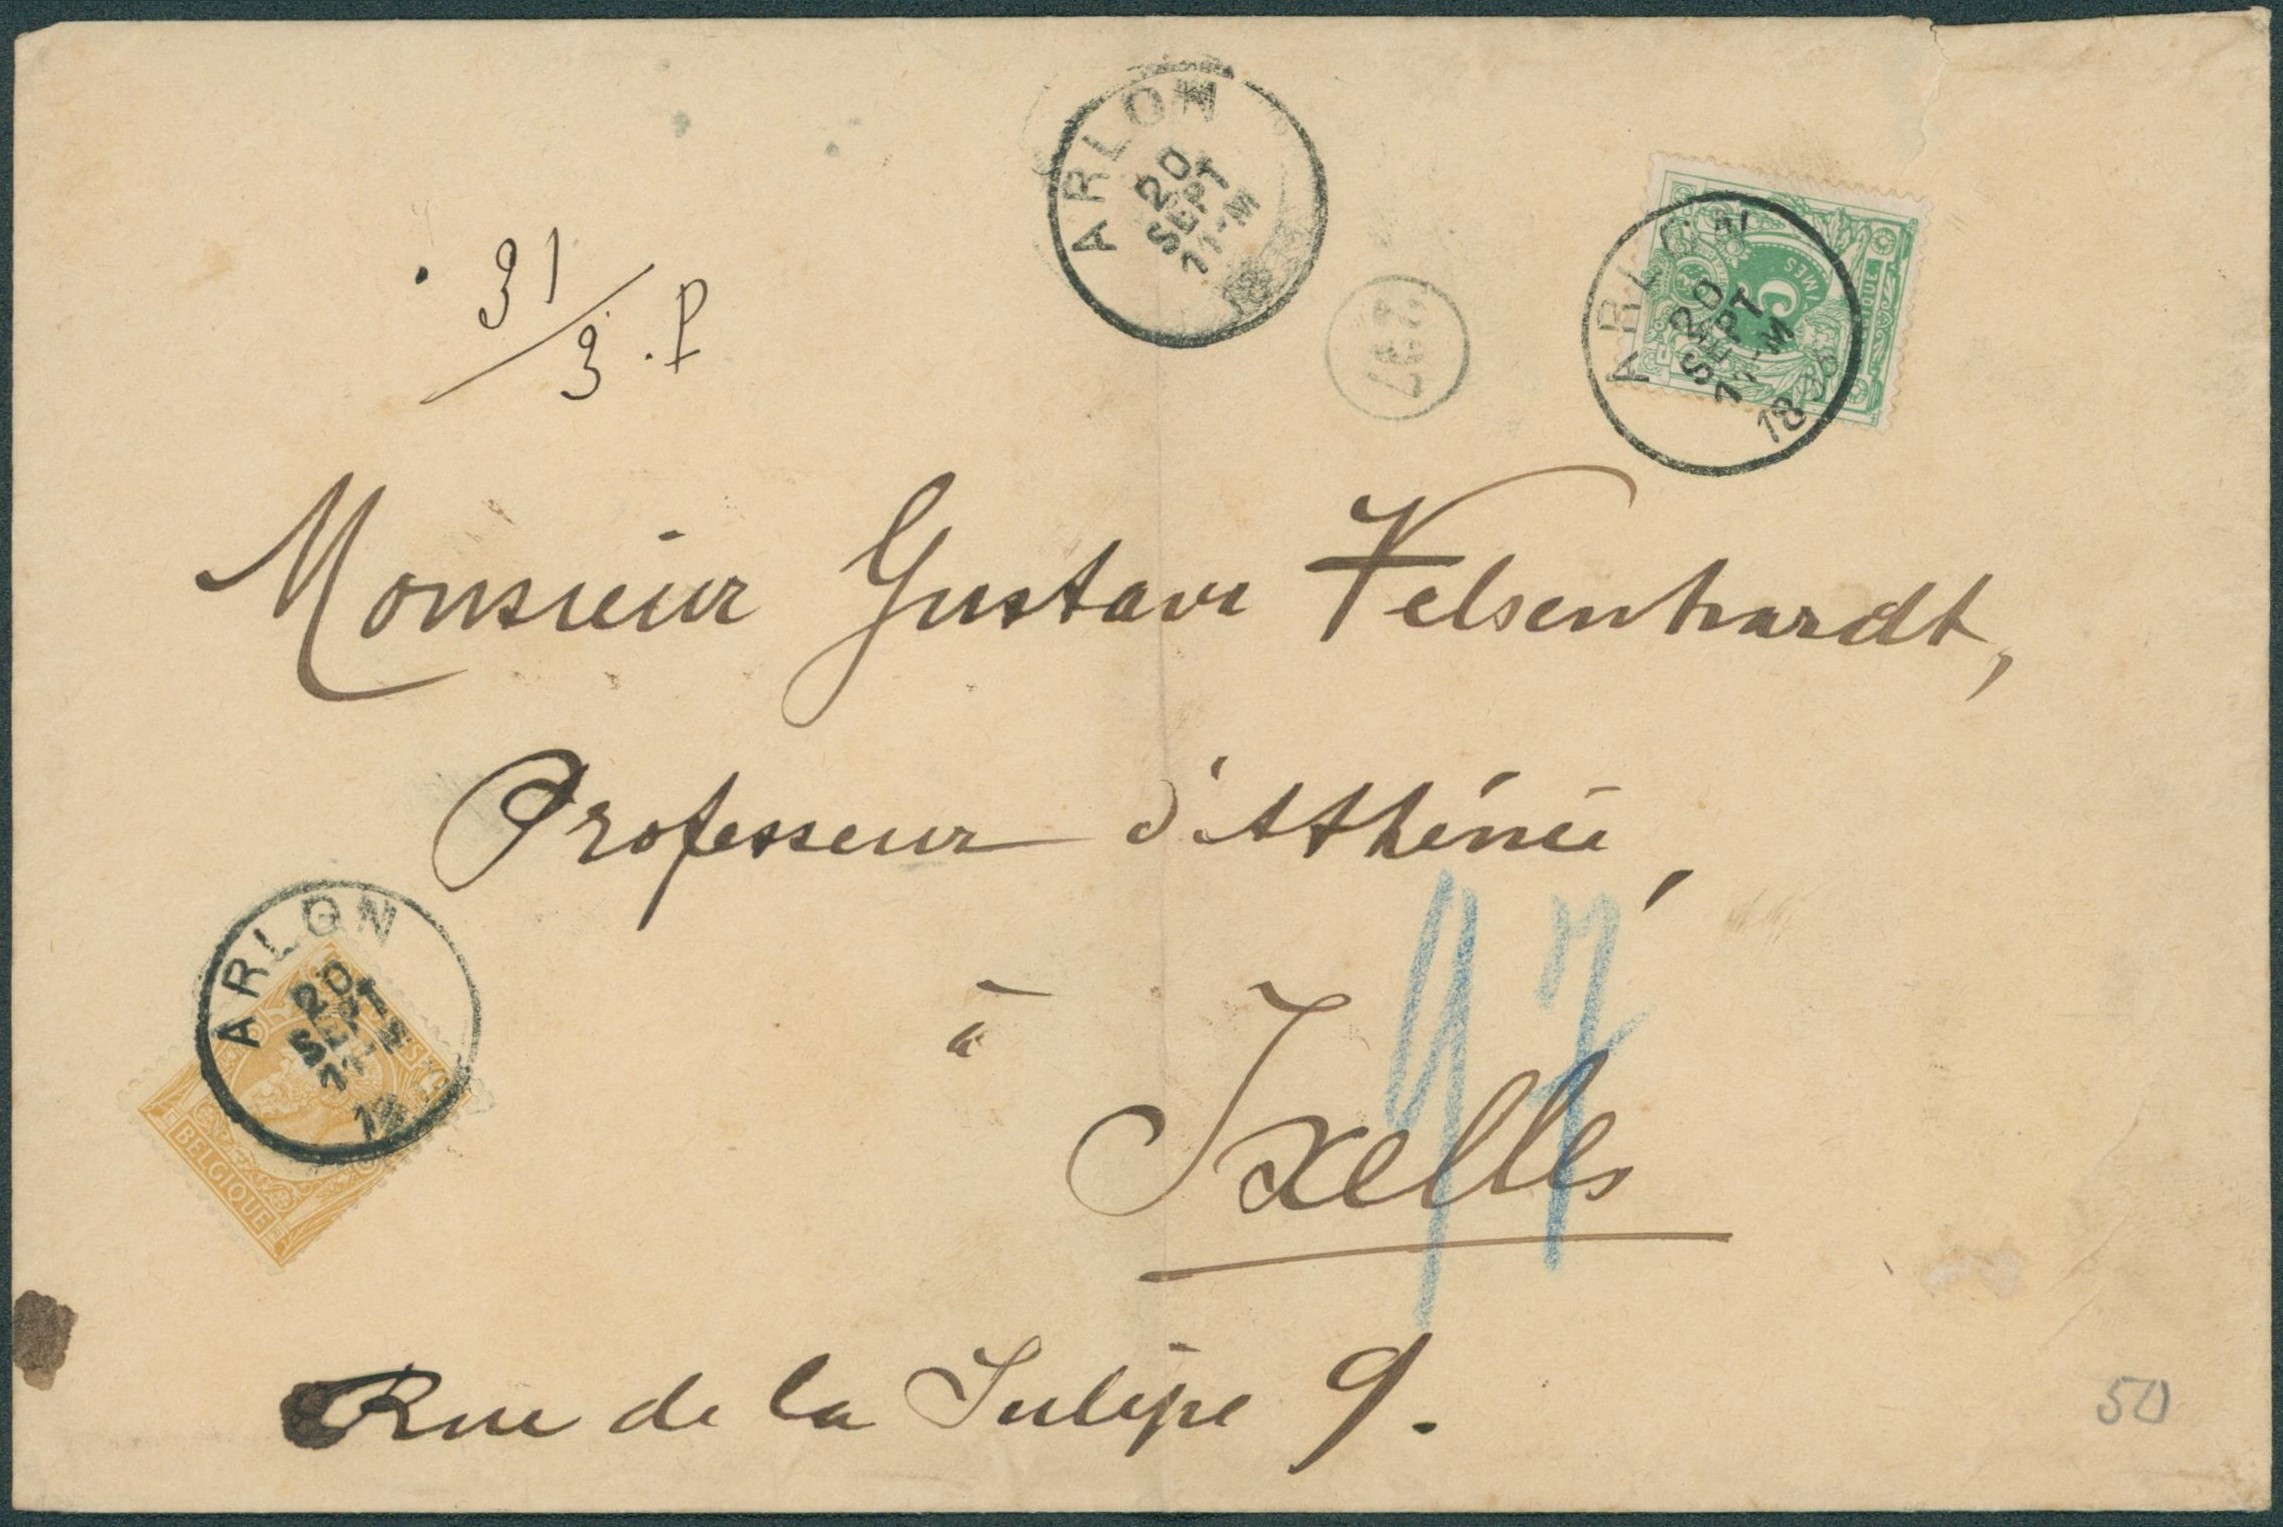 ARLON
20
SEPT
11-M
ARLON
20
SEPT
11-M
18
5
31/3.P
237
Monsieur Gustave Felsenhardt,
Professeur d'Athénée,
97
à
Ixelles
ARLON
20
SEPT
11-M
18
BELGIQUE
Rue de la Tulipe 9.
50